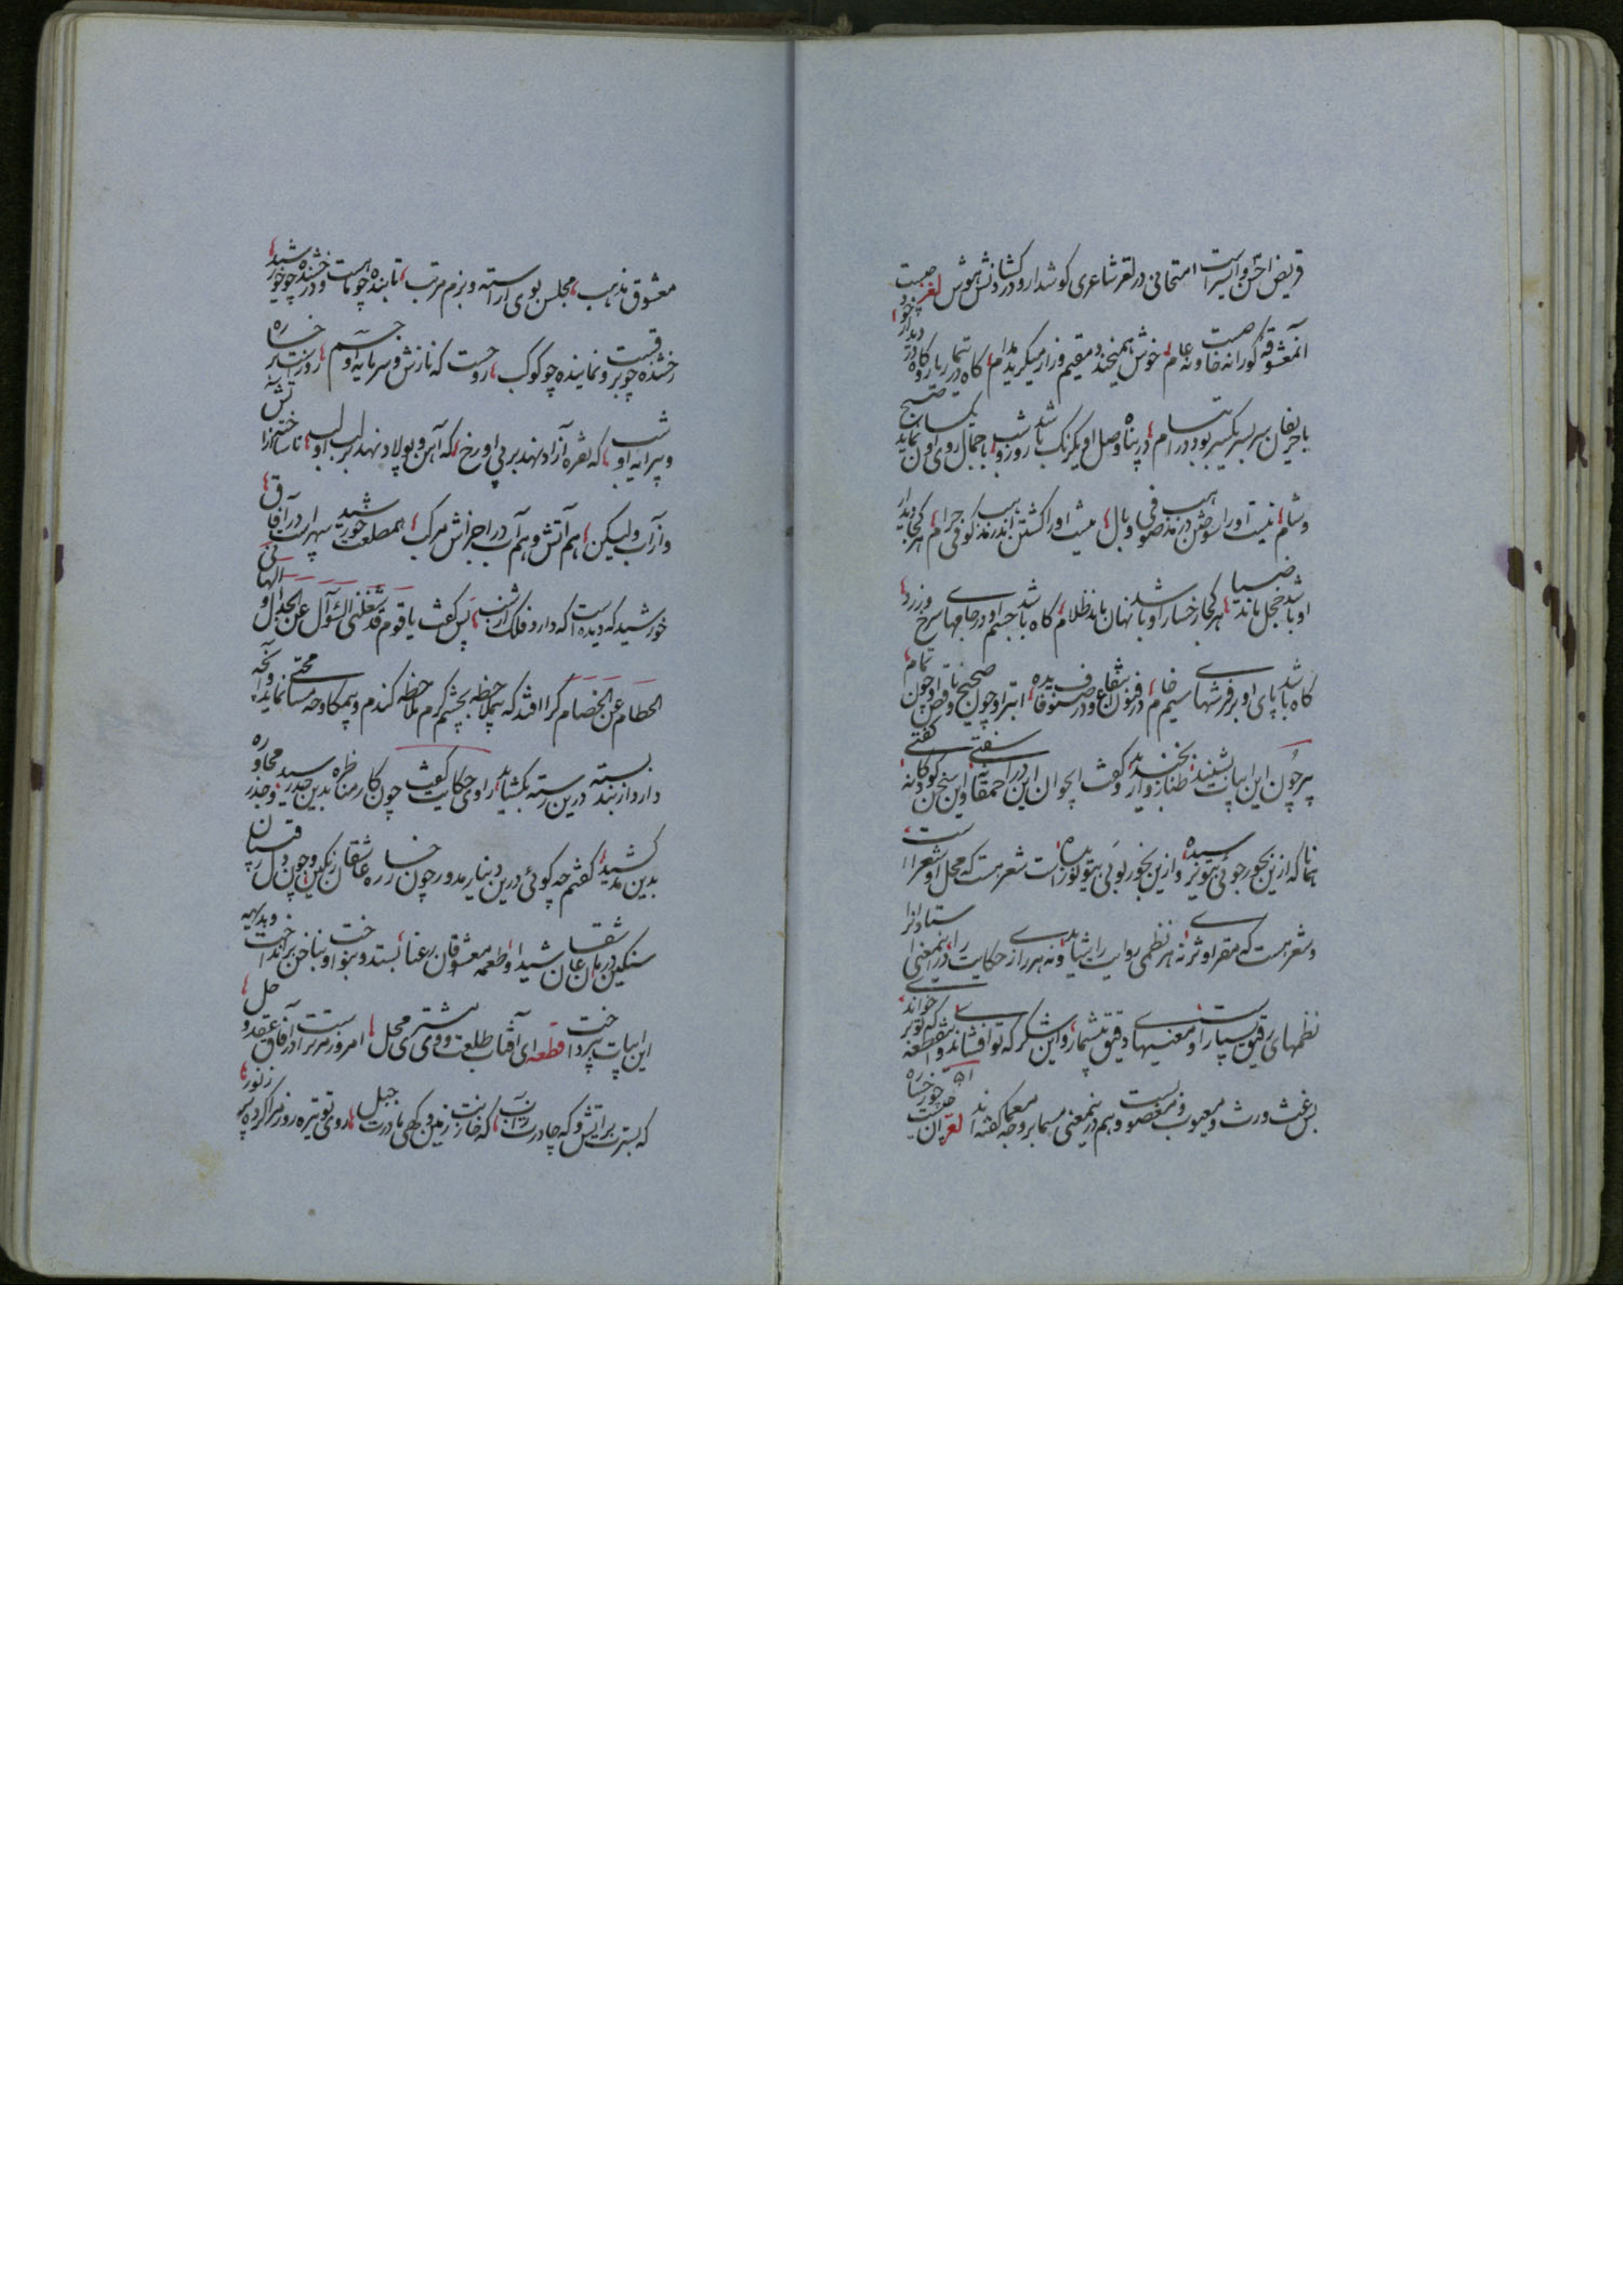 قریض اخرس وابتر است امتحانی در لغز شاعری گوش دار و در کشانش هوش لغز چیست
آنمعشوقه کورا نه خاص و نه عام خوش همیخندد مقیم و زار میگرید مدام گاه در تیمار یار و گاه در دیدار خود
با حریفان سر بسر یکسر بود در ابتسام در پناه وصل او یکرنگ باشد روز و شب با جمال روی او یکسان نماید صبح
و شام نیست اورا سوختن در مذهب صوفی وبال نیست اورا کشتن اندر مذهب کوفی حرام هر کجا دیدار
او باشد خجل ماند ضیا هر کجا رخسار او باشد نهان ماند ظلام گاه باشد جسم او در جامهای سرخ و زرد
گاه باشد پای او بر فرشهای سیم خام در فنون انتفاع و در صنوف فایده ابتر او چون صحیح و ناقص او چون تمام
پیر چون این ابیات بشنید بخندید طنازوار و گفت ای جوان این در احمقانه سفتی و این سخن کودکانه گفتی
همانا که ازین بحور جوئی بتو نرسیده و ازین بخور بوئی بتو نوزیده است شعر هست که محل او شعر است
و شعر هست که مقر او شری نه هر نظمی روایت را شاید و نه هر رازی حکایت را درین معنی استادانرا
نظمهای رقیق بسیار است و معنیهای دقیق بیشمار و این شکر که تو افشاندی و این قطعه که تو بر خواندی
بس غث و رث و معیوب و مغصوبست و هم درین معنی مسما بر وجه معما گفته اند لغز آن چیست چو رخساره
معشوق مذهب مجلس بوی آراسته و بزم مرتب تابنده چو ماهست و درخشنده چو خورشید
رخشنده چو برقست و نماینده چو کوکب روحست که نارش و سرمایه او جسم روزست بر خساره
و پیرایه او شب که نقره آزاد نهد بر پی او رخ که آهن و پولاد نهد بر لب او لب ناساخته از آتش
و از آب ولیکن هم آتش و هم آب در اجزاش مرکب همطلعت خورشید سپهر است در آفاق
خورشید که دیده است که دارد فلک از شب پس گفت یا قوم قد شغلنی السؤال عن الجدال و الهانی
الحطام عن الخصام کرا افتد که بملاحظه بچشم کرم ملاحظه کندم و بمکاوحه مسامحتی نماید و آنچه
دارد از بند بسته درین رسته بگشاید راوی حکایت گفت چون کار مناظره بدین جد رسید و محاوره
بدین مد کشید گفتم چه گوئی درین دینار مدور چون رخساره عاشقان رنگین و چون دل رقیبان
سنگین درمان عاشقان شیدا و طعمه معشوقان رعنا بستد و بنواخت و بناخن برانداخت و بدیهه
این ابیات بپرداخت قطعه ای آفتاب طلعت و وی مشتری محل امروز مر تراست در آفاق عقد و حل
که بسترت بر آتش و که چادرت ز آب که خازنت زمین و گهی مادرت جبل روی تو تیره روز مرا کرده چو نور